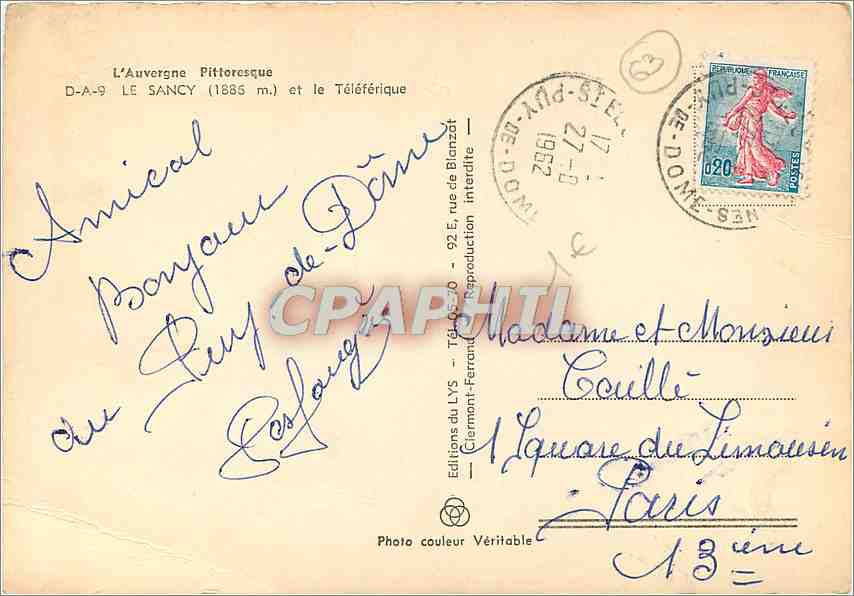 L'Auvergne Pittoresque
D-A-9 LE SANCY (1885 m.) et le Téléférique
Amical
Bonjour
du Puy-de-Dôme
Editions du LYS - Tél 05-70 - 92 E, rue de Blanzat
Clermont-Ferrand Reproduction interdite
Photo couleur Véritable
CPAPHIL
63
17
27-8
1962
PUY-DE-DOME
REPUBLIQUE FRANÇAISE
0,20
POSTES
DE-DOME
Madame et Monsieur
Caillé
1 Square du Limousin
Paris
13 ième